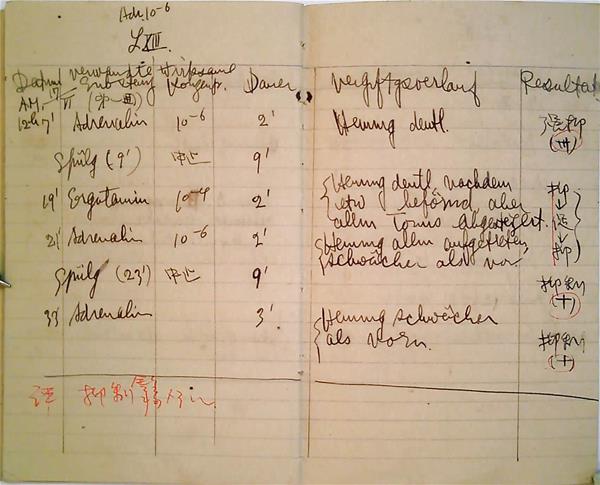 Adr. 10-6
LXIII.
Datum verwandte Substanz wirksame Konzent. Dauer Vergiftgsverlauf Resultat
12h 7' Adrenalin 10-6 2' Hemung deutl.
(卅)
Spülg (9') 中止 9'
19' Ergotamin 10-4 2' Hemung deutl. nachdem
etw. beförnd, aber
allm Tonus
抑 ↓ 促 ↓ 抑
21' Adrenalin 10-6 2' Hemung allm aufgetreten,
schwächer als vor.
Spülg (23') 中止 9'
抑制
(+)
33' Adrenalin 3' Hemung schwächer
als vorn.
抑制
(+)
抑制